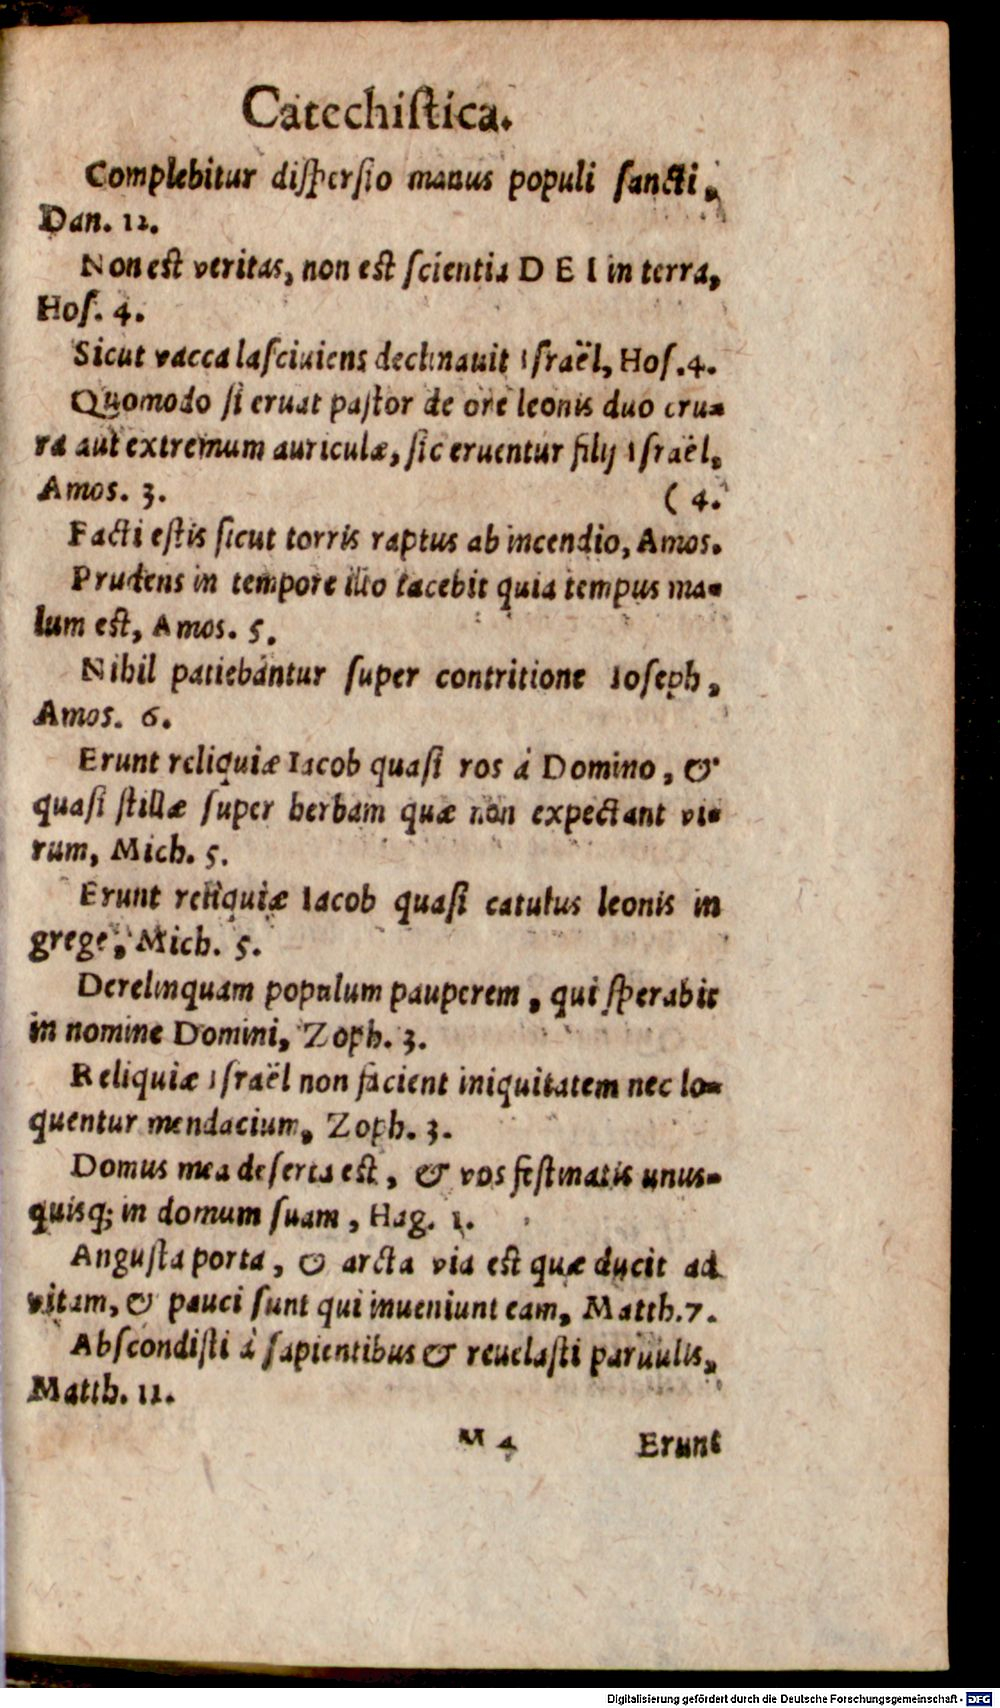 Catechiſtica.
Complebitur diſperſio manus populi ſancti,
Dan. 12.
Non est veritas, non est ſcientia DEI in terra,
Hoſ. 4.
Sicut vacca laſciuiens declinauit Iſraël, Hoſ. 4.
Quomodo ſi eruat paſtor de ore leonis duo cru-
ra aut extremum auriculæ, ſic eruentur filij Iſraël,
Amos. 3. (4.
Facti eſtis ſicut torris raptus ab incendio, Amos.
Prudens in tempore illo tacebit quia tempus ma-
lum est, Amos. 5.
Nihil patiebantur ſuper contritione Ioſeph,
Amos. 6.
Erunt reliquiæ Iacob quaſi ros à Domino, &
quaſi ſtillæ ſuper herbam quæ non expectant vi-
rum, Mich. 5.
Erunt reliquiæ Iacob quaſi catulus leonis in
grege, Mich. 5.
Derelinquam populum pauperem, qui ſperabit
in nomine Domini, Zoph. 3.
Reliquiæ Iſraël non facient iniquitatem nec lo-
quentur mendacium, Zoph. 3.
Domus mea deſerta est, & vos feſtinatis unus-
quisq; in domum ſuam, Hag. 1.
Anguſta porta, & arcta via est quæ ducit ad
vitam, & pauci ſunt qui inueniunt eam, Matth. 7.
Abſcondiſti à ſapientibus & reuelaſti paruulis,
Matth. 11.
M 4 Erunt
Digitalisierung gefördert durch die Deutsche Forschungsgemeinschaft - DFG